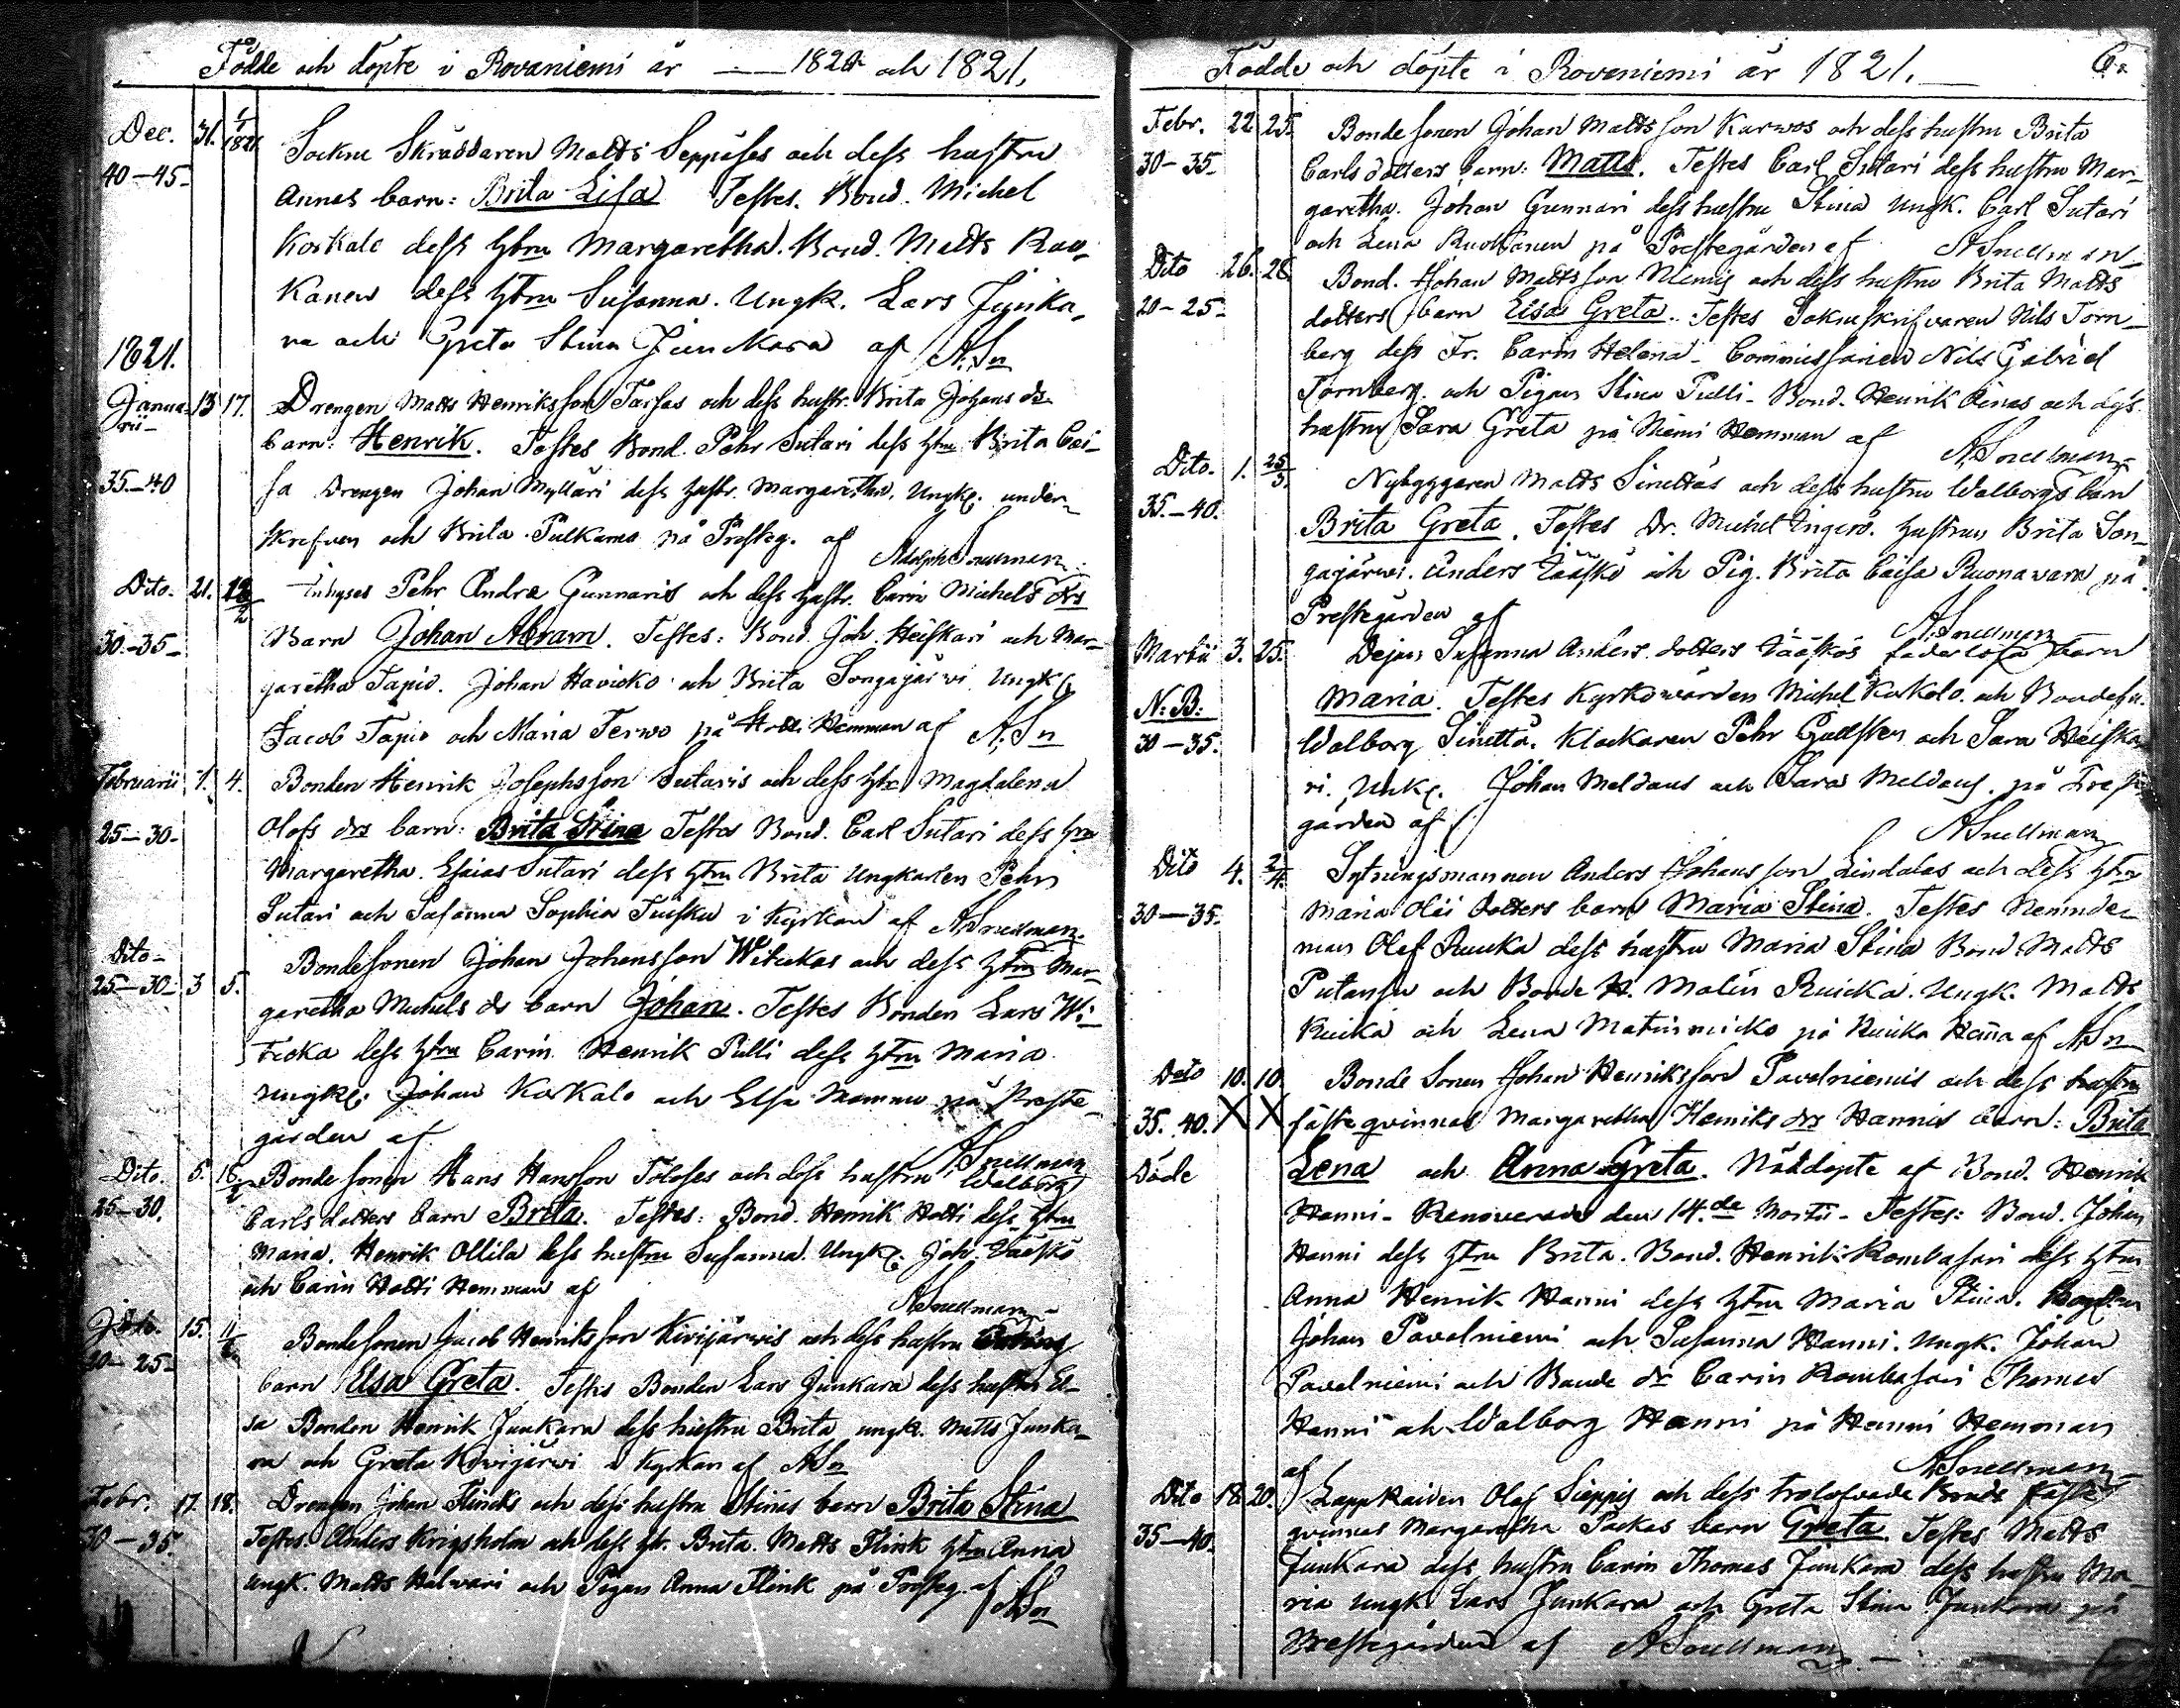 Födde och döpte i Rovaniemi år 1820 och 1821.
Dec. 31. 1/1 1821. Sockne Skräddaren Matts Seppäses och dess hustru
40-45- Annas barn: Brita Lisa Testes. Bond. Michel
Korkalo dess htru Margaretha. Bond. Matts Rau-
kanen dess htru Susanna. Ungk. Lars Junka-
ra och Greta Stina Junckara af A.Sn
1821.
Janua- 13 17. Drengen Matts Henriksson Tarsas och dess hustr. Brita Johans dr
rii- barn: Henrik. Testes Bond. Pehr Sutari dess htru Brita Cai-
35.-40 sa Drengen Johan Myllari dess hustr. Margaretha, Ungk. under-
skrefven och Brita Pulkamo på Presteg. af
Adolph Snellman.
Dito. 21. Inhyses Pehr Andrae Gunnaris och dess hustr. Carin Michels drs
30-35- Barn Johan Abram. Testes: Bond. Joh. Heiskari och Mar-
garetha Tapio. Johan Havicko och Brita Songajärvi Ungk.
Jacob Tapio och Maria Terwo på Hemman af A.Sn
Februarii 1. 4. Bonden Henrik Josephsson Sutaris och dess htr Magdalena
25-30- Olofs drs barn: Brita Stina Testes Bond. Carl Sutari dess htru
Margaretha. Esaias Sutari dess htru Brita Ungkarlen Pehr
Sutari och Susanna Sophia Tuisku i Kyrkan af A Snellman.
Dito- Bondesonen Johan Johansson Witickas och dess htru Mar-
25-30- 3 5. garetha Michels dr barn Johan. Testes Bonden Lars Wi-
ticka dess htru Carin. Henrik Pulli dess htru Maria
Ungk. Johan Korkalo och Elsa Mommo på Preste-
gården af
A Snellman
Dito. 5. Bondesonen Hans Hansson Toloses och dess hustru Walborg
25-30. Carls dotters barn Brita. Testes: Bond. Henrik Hatti dess htru
Maria. Henrik Ollila dess hustru Susanna. Ungk. Joh. Vääskö
och Carin Hatti Hemman af
A Snellman
Dito. 15. Bondesonen Jacob Henriksson Kivijärvis och dess hustru
20-25- barn Elsa Greta. Testes Bonden Lars Junkara dess hustru El-
sa Bonden Henrik Junkara dess hustru Brita ungk. Matts Junka-
ra och Greta Kivijärvi i Kyrkan af ASn
Febr. 17. 18. Drengen Johan Flincks och dess hustru Stinas barn Brita Stina
30-35. Testes. Anders Krigsholm och dess ht. Brita. Matts Flink htru Anna
ungk. Matts Halvari och Pigan Anna Flink på Presteg. af ASn
Födde och döpte i Rovaniemi år 1821. 6.
Febr. 22 25. Bonde sonen Johan Mattsson Karwos och dess hustru Brita
30-35- Carls dotters barn: Matts. Testes Carl Sutari dess hustru Mar-
garetha. Johan Gunnari dess hustru Stina Ungk. Carl Sutari
och Lena Ruokanen på Prestegården af A Snellman
Dito 26. 28. Bond. Johan Mattsson Niemis och dess hustru Brita Matts
20-25- dotters barn Lisa Greta. Testes Sokneskrifvaren Nils Torn-
berg dess Fr. Carin Helena- Commissarien Nils Gabriel
Tornberg och Pigan Stina Pulli- Bond. Henrik Ainas och dess
hustru Sara Greta på Niemi Hemman af
A.Snellman-
Dito. 1. 25/3. Nybyggaren Matts Sinettäs och dess hustru Walborgs barn
35.-40. Brita Greta. Testes Dr. Michel Ingerö. Hustrun Brita Son-
gajärwi. Anders Vääskö och Pig. Brita Caisa Ruonavara på
Prestegården af
A.Snellman
Martii 3. 25. Dejan Susanna Anders dotters Vääskös faderlösa barn
N:B: Maria. Testes Kyrkowärden Michel Korkalo och Bondehu.
30-35. Walborg Sinettä. Klockaren Pehr Gullsten och Sara Heiska-
ri. Unk. Johan Meldaus och Sara Meldaus. på Preste
gården af
A Snellman
Dito 4. 2/4. Sytningsmannen Anders Johansson Lindalas och dess htru
30-35. Maria Olli dotters barn Maria Stina. Testes Nemnde-
man Olof Ruika dess hustru Maria Stina Bond. Matts
Putansu och Bonde H. Malin Ruicka. Ungk. Matts
Ruika och Lena Matinmicko på Ruika Hemma af A.Sn
Dito 10. 10. Bonde Sonen Johan Henriksson Pavelniemis och dess hustru
35. 40. X X fästeqvinnas Margaretha Henriks drs Hannis barn: Brita
Döde Lena och Anna Greta. Nöddöpte af Bond. Henrik
Hanni- Renoverade den 14.de Martii- Testes: Bond. Johan
Hanni dess htru Brita. Bond. Henrik Rombasari dess htru
Anna Henrik Hanni dess htru Maria Stina.
Johan Pavelniemi och Susanna Hanni. Ungk. Johan
Pavelniemi och Bonde dr Carin Rombasari Thomas
Hanni och Walborg Hanni på Hanni Hemman
af A Snellman
Dito 18. 20. Lappkarlen Olof Sieppis och dess trolofvade fäste
35-40. qvinnas Margaretha Packas barn Greta. Testes Matts
Junkara dess hustru Carin Thomas Junkara dess hustru Ma-
ria Ungk Lars Junkara och Greta Stina Junkara på
Prestegården af A Snellman